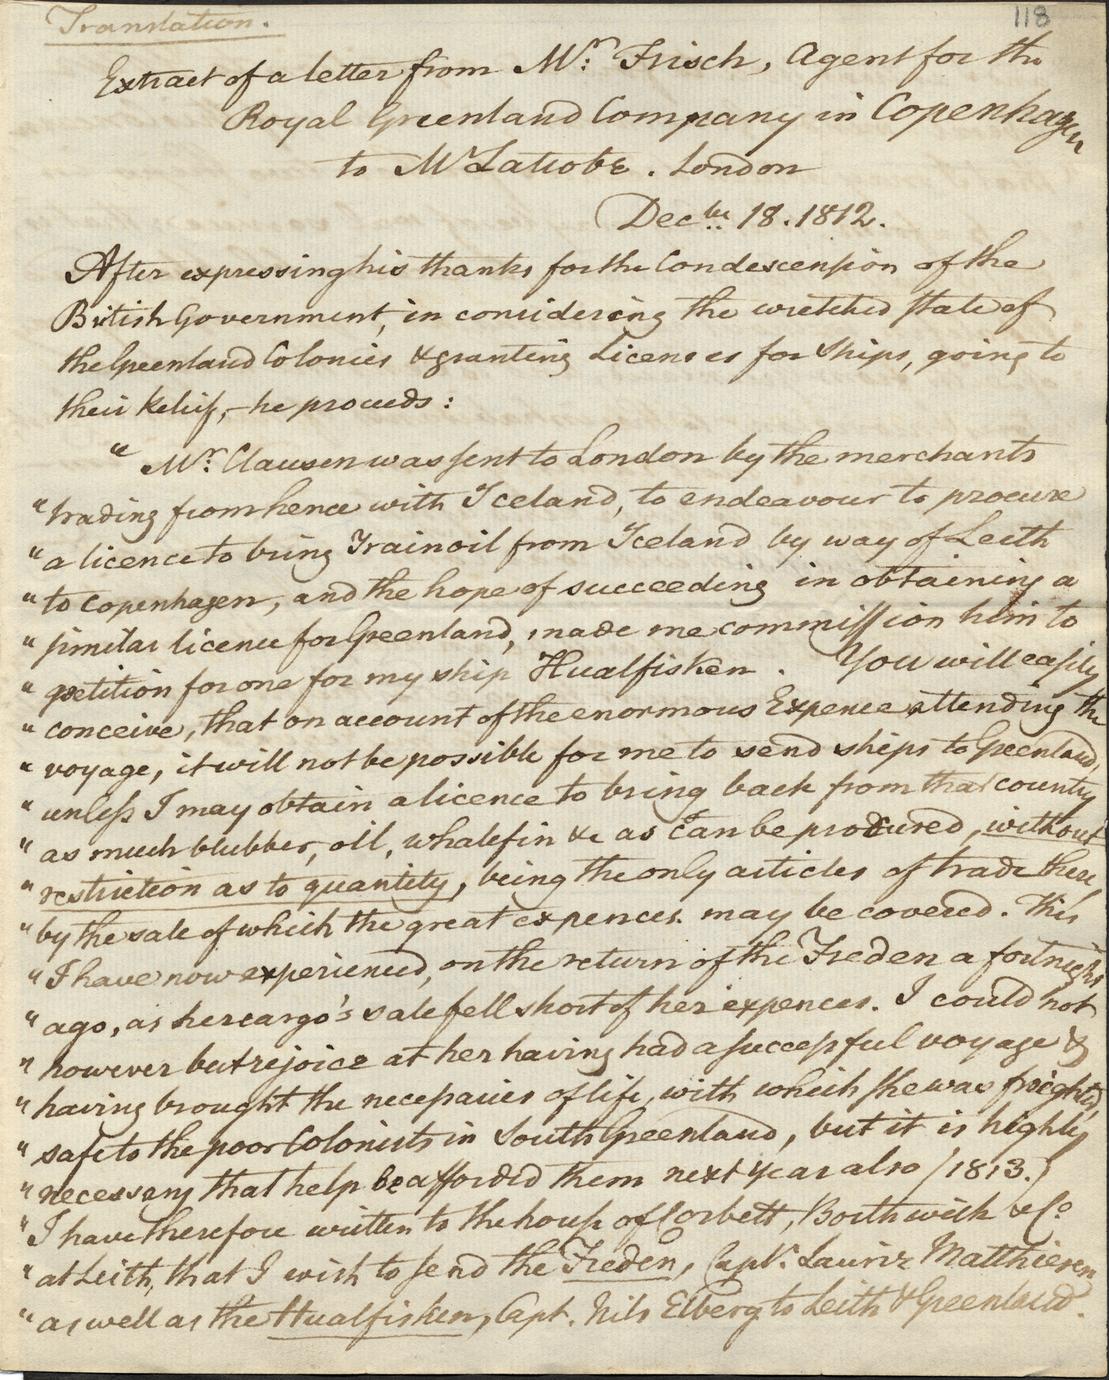 Translation.
118
Extract of a letter from Mr: Frisch, Agent for the
Royal Greenland Company in Copenhagen
to Mr Latrobe. London
Decbr 18. 1812.
After expressing his thanks for the Condescension of the
British Government, in considering the wretched state of
the Greenland Colonies & granting Licenses for Ships, going to
their Relief, - he proceeds:
" Mr: Clausen was sent to London by the merchants
" trading from hence with Iceland, to endeavour to procure
" a licence to bring Trainoil from Iceland by way of Leith
" to Copenhagen, and the hope of succeeding in obtaining a
" similar licence for Greenland, made me commission him to
" petition for one for my ship Hualfisken. You will easily
" conceive, that on account of the enormous Expence attending the
" voyage, it will not be possible for me to send ships to Greenland,
" unless I may obtain a licence to bring back from that country
" as much blubber, oil, whalefin &c as can be procured, without
" restriction as to quantity, being the only articles of trade there,
" by the sale of which the great expences may be covered. This
" I have now experienced, on the return of the Freden a fortnight
" ago, as her cargo's sale fell short of her expences. I could not
" however but rejoice at her having had a successful voyage &
" having brought the necessaries of life, with which she was freighted,
" safe to the poor Colonists in South Greenland, but it is highly
" necessary that help be afforded them next year also (1813.)
" I have therefore written to the house of Corbett, Borthwick & Co
" at Leith, that I wish to send the Freden, Capt. Lauriz Matthiesen
" as well as the Hualfisken, Capt. Nils Eiberg to Leith & Greenland.